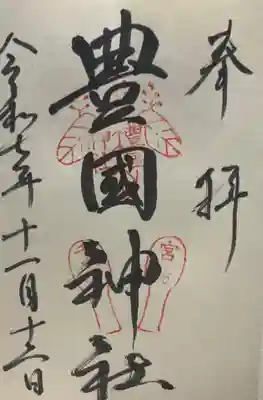 奉拝
豊國神社
令和七年十一月十三日